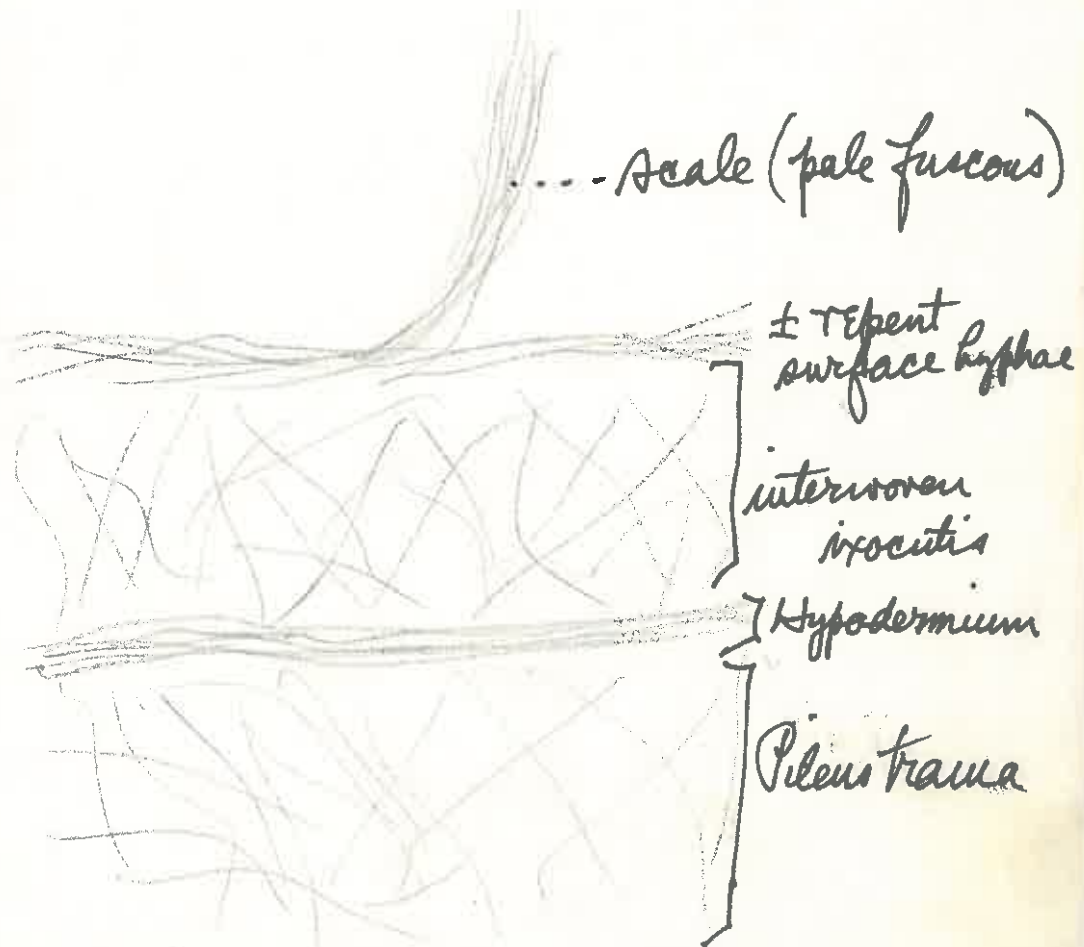 scale (pale fuscous)
± repent
surface hyphae
interwoven
ixocutis
Hypodermium
Pileus trama